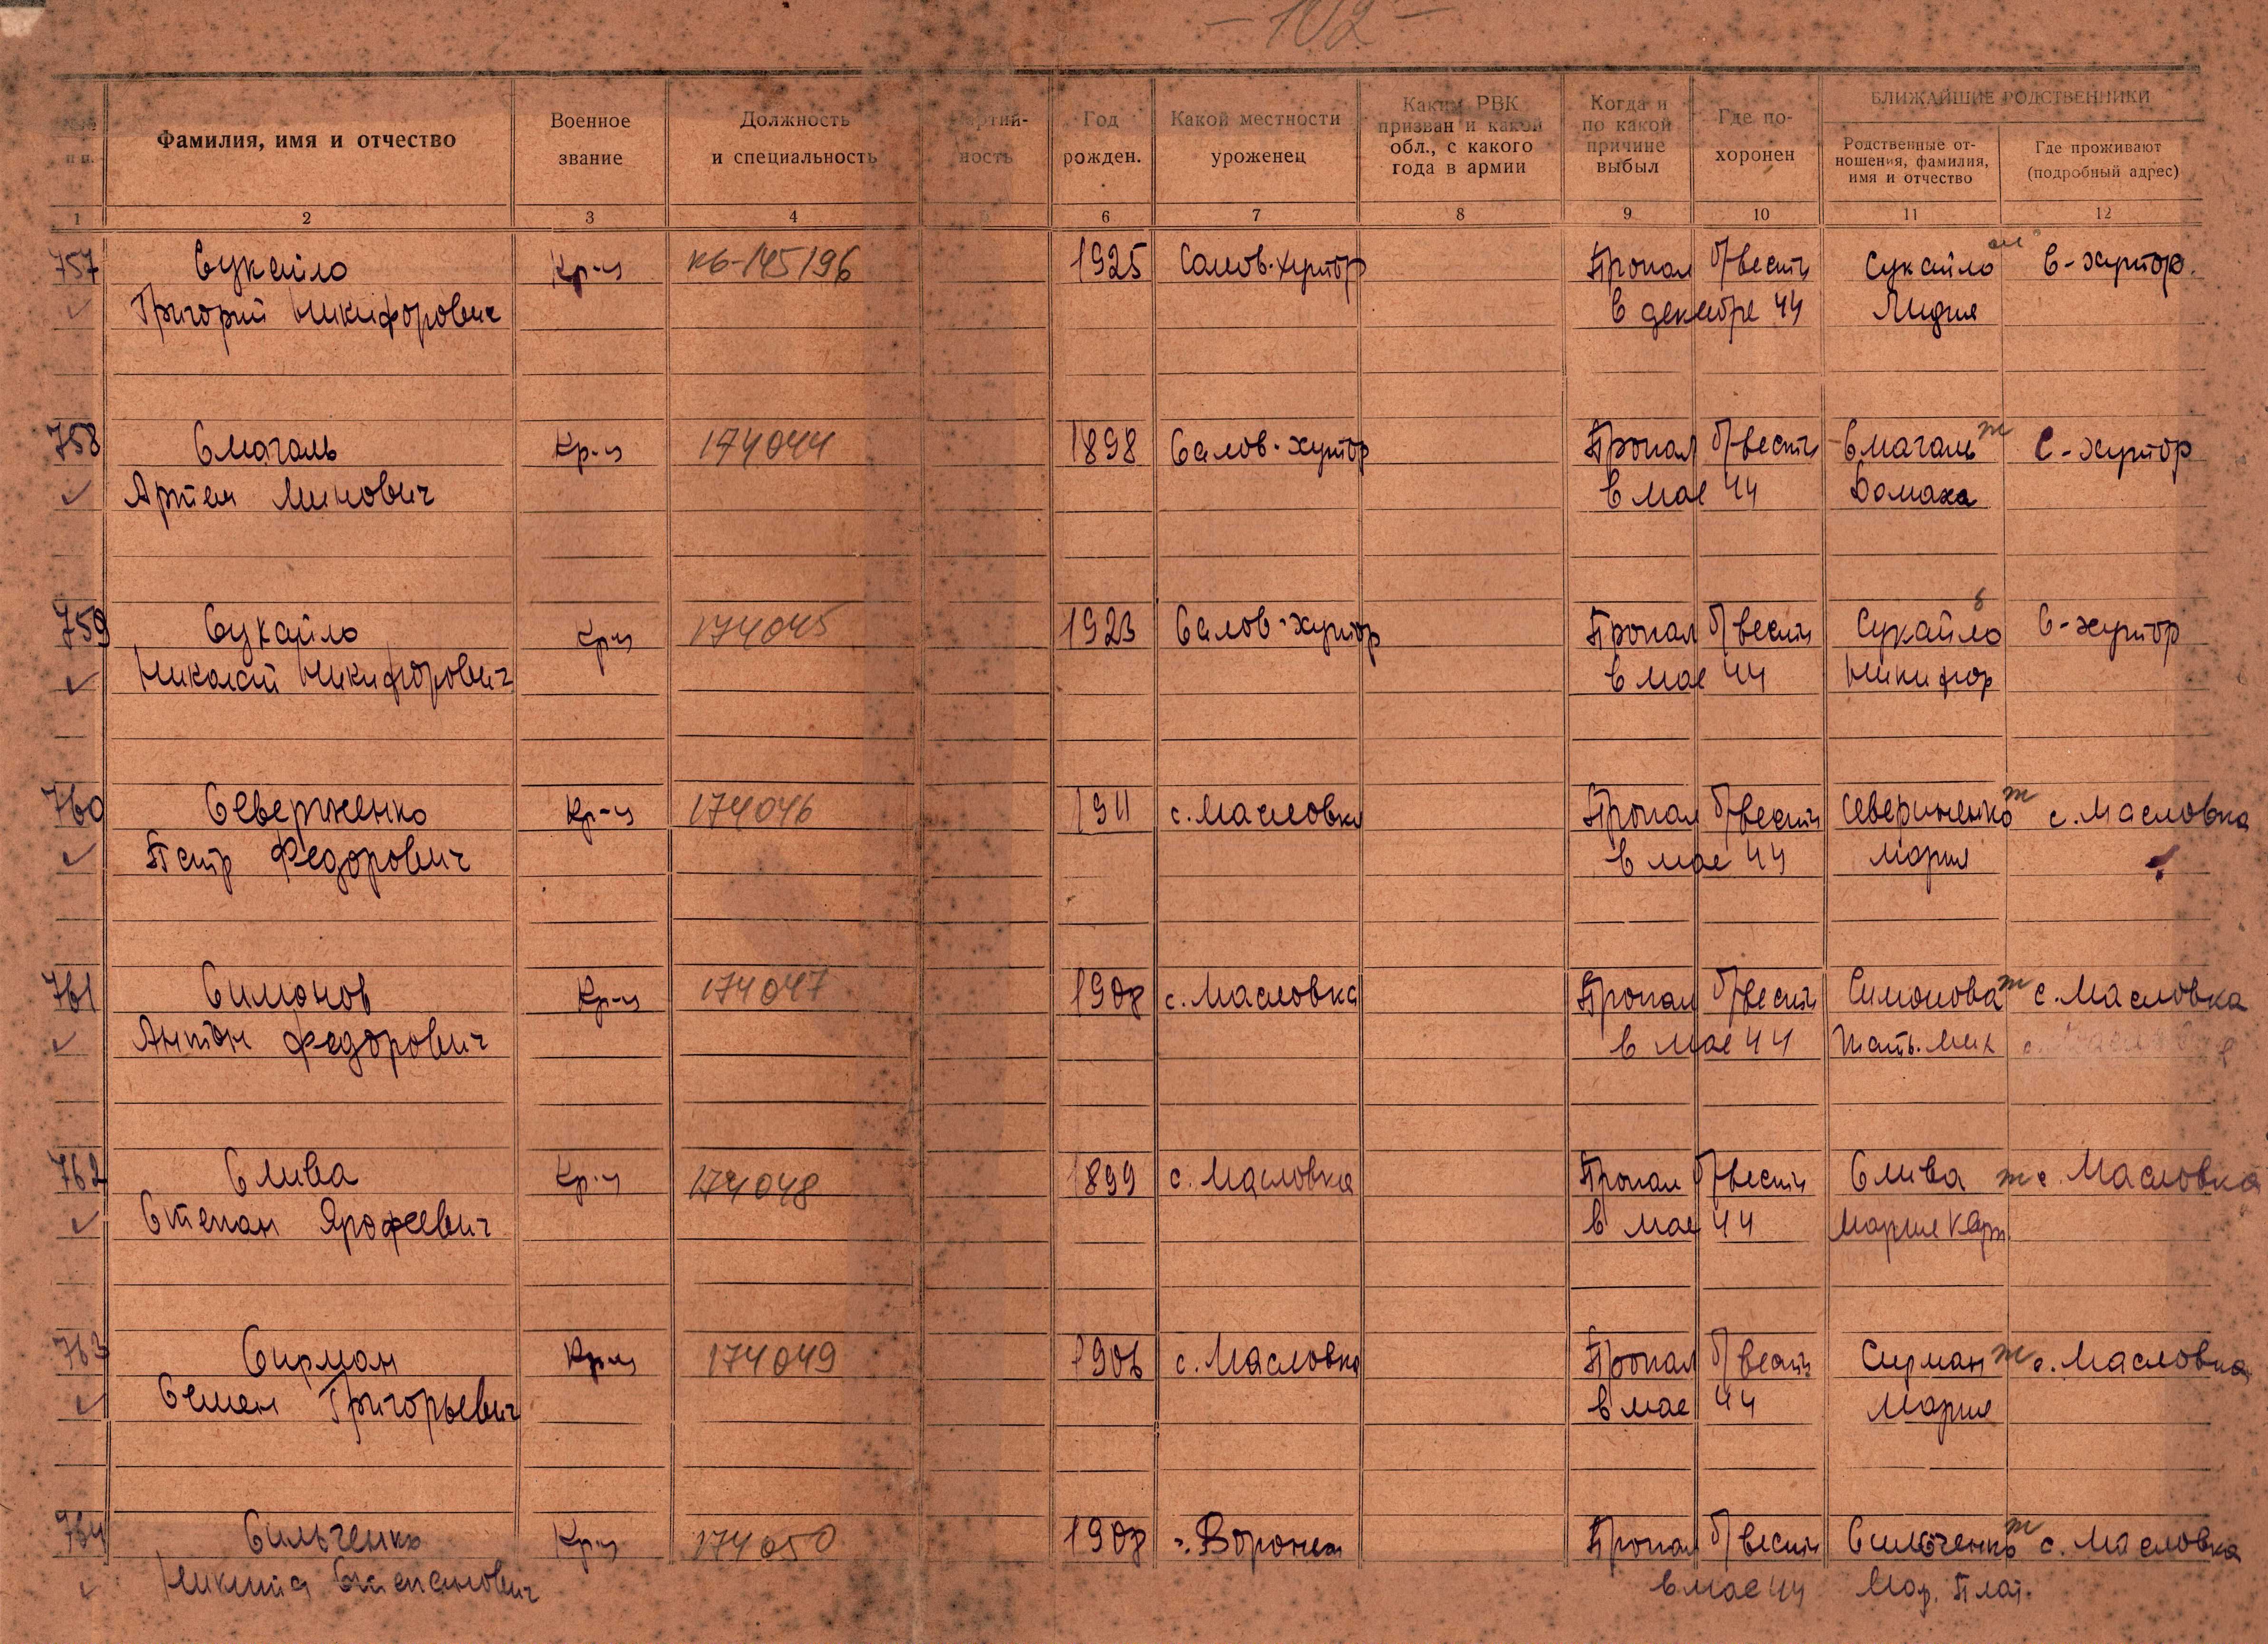 - 102 -
БЛИЖАЙШИЕ РОДСТВЕННИКИ
Фамилия, имя и отчество
Военное
звание
Должность
и специальность
ность
Год
рожден.
Какой местности
уроженец
Каким РВК
призван и какой
обл., с какого
года в армии
Когда и
по какой
причине
выбыл
Где по-
хоронен
Родственные от-
ношения, фамилия,
имя и отчество
Где проживают
(подробный адрес)
1 2 3 4 5 6 7 8 9 10 11 12
757 Сукайло Кр-ц К6-145196 1925 Салов-хутор Пропал б/вести Сукайло С-хутор.
Григорий Никифорович в декабре 44 Лидия
758 Смагаль Кр-ц 174044 1898 Салов-хутор Пропал б/вести Смагаль ж С-хутор
Артем Минович в мае 44 Домаха
759 Сукайло Кр-ц 174045 1923 Салов-хутор Пропал б/вести Сукайло С-хутор
Николай Никифорович в мае 44 Никифор
760 Северненко Кр-ц 174046 1911 с. Масловка Пропал б/вести ж с. Масловка
Петр Федорович в мае 44 Мария
761 Симонов Кр-ц 174047 1908 с. Масловка Пропал б/вести Симонова ж с. Масловка
Антон Федорович в мае 44
762 Слива Кр-ц 174048 1899 с. Масловка Пропал б/вести Слива ж с. Масловка
Степан Ярофеевич в мае 44 Мария Карп
763 Сирман Кр-ц 174049 1906 с. Масловка Пропал б/вести Сирман ж с. Масловка
Семен Григорьевич в мае 44 Мария
764 Сильченко Кр-ц 174050 1908 Пропал б/вести Сильченко ж с. Масловка
Никита Степанович в мае 44 Мар. Плат.